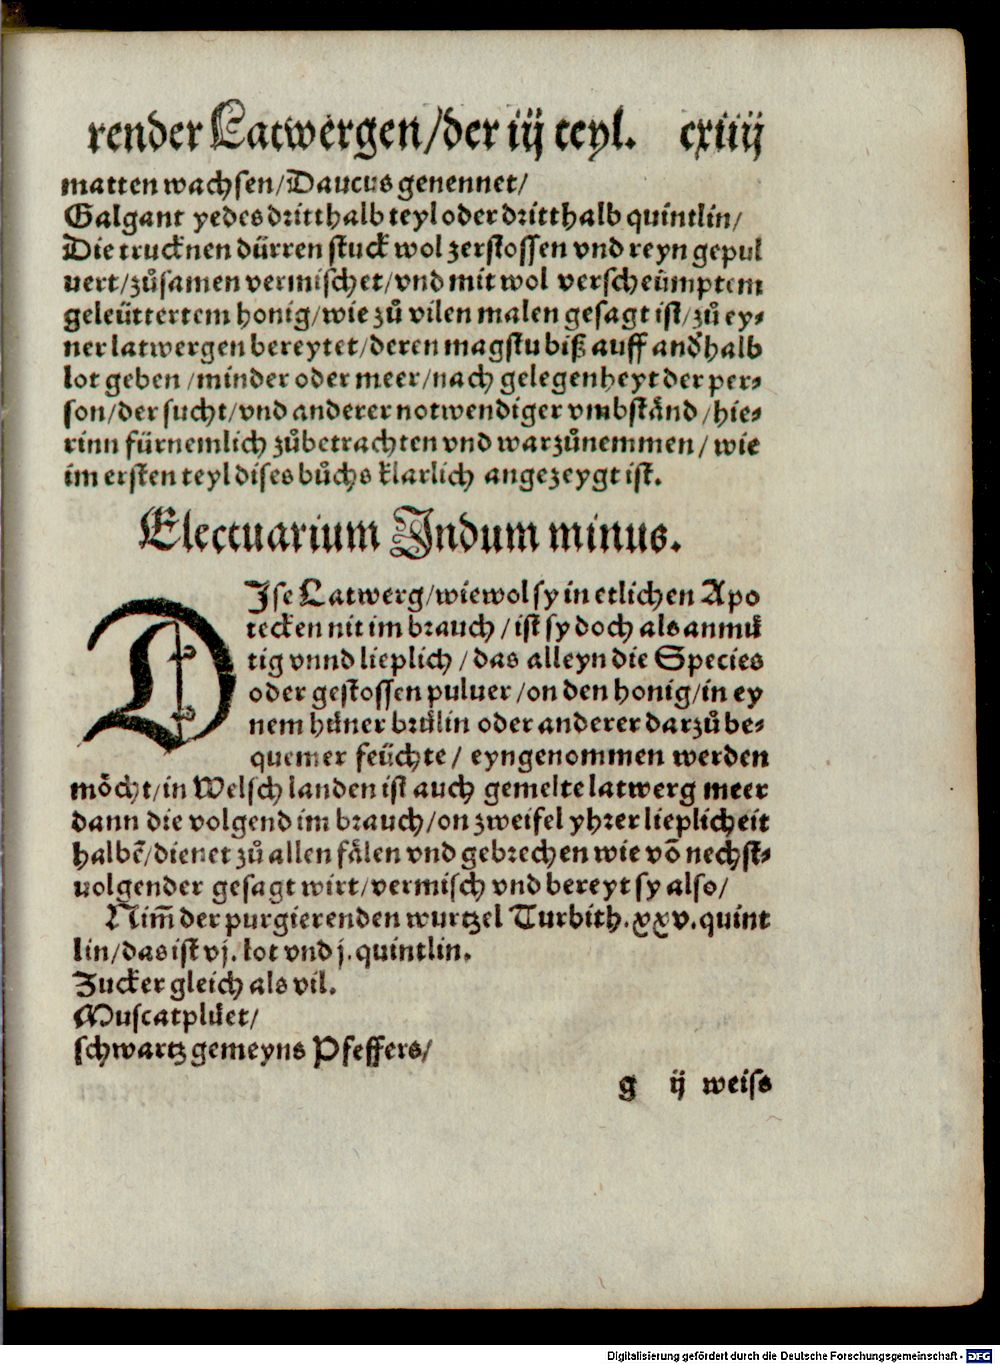 render Latwergen/der iij teyl. cxiiij
matten wachsen/Daucus genennet/
Galgant yedes dritthalb teyl oder dritthalb quintlin/
Die trucknen dürren stuck wol zerstossen vnd reyn gepul
uert/zůsamen vermischet/vnd mit wol verscheümptem
geleüttertem honig/wie zů vilen malen gesagt ist/zů ey⸗
ner latwergen bereytet/deren magstu biß auff andhalb
lot geben/minder oder meer/nach gelegenheyt der per⸗
son/der sucht/vnd anderer notwendiger vmbstånd/hie⸗
rinn fürnemlich zůbetrachten vnd warzůnemmen/wie
im ersten teyl dises bůchs klarlich angezeygt ist.
Electuarium Indum minus.
DIse Latwerg/wiewol sy in etlichen Apo
tecken nit im brauch/ist sy doch als anmů
tig vnnd lieplich/das alleyn die Species
oder gestossen puluer/on den honig/in ey
nem hůner brůlin oder anderer darzů be⸗
quemer feüchte/eyngenommen werden
möcht/in Welsch landen ist auch gemelte latwerg meer
dann die volgend im brauch/on zweifel yhrer lieplicheit
halbē/dienet zů allen fålen vnd gebrechen wie võ nechst⸗
uolgender gesagt wirt/vermisch vnd bereyt sy also/
Nim̃ der purgierenden wurtzel Turbith.xxv.quint
lin/das ist vj.lot vnd j.quintlin.
Zucker gleich als vil.
Muscatplůet/
schwartz gemeyns Pfeffers/
g ij weiss
Digitalisierung gefördert durch die Deutsche Forschungsgemeinschaft - DFG